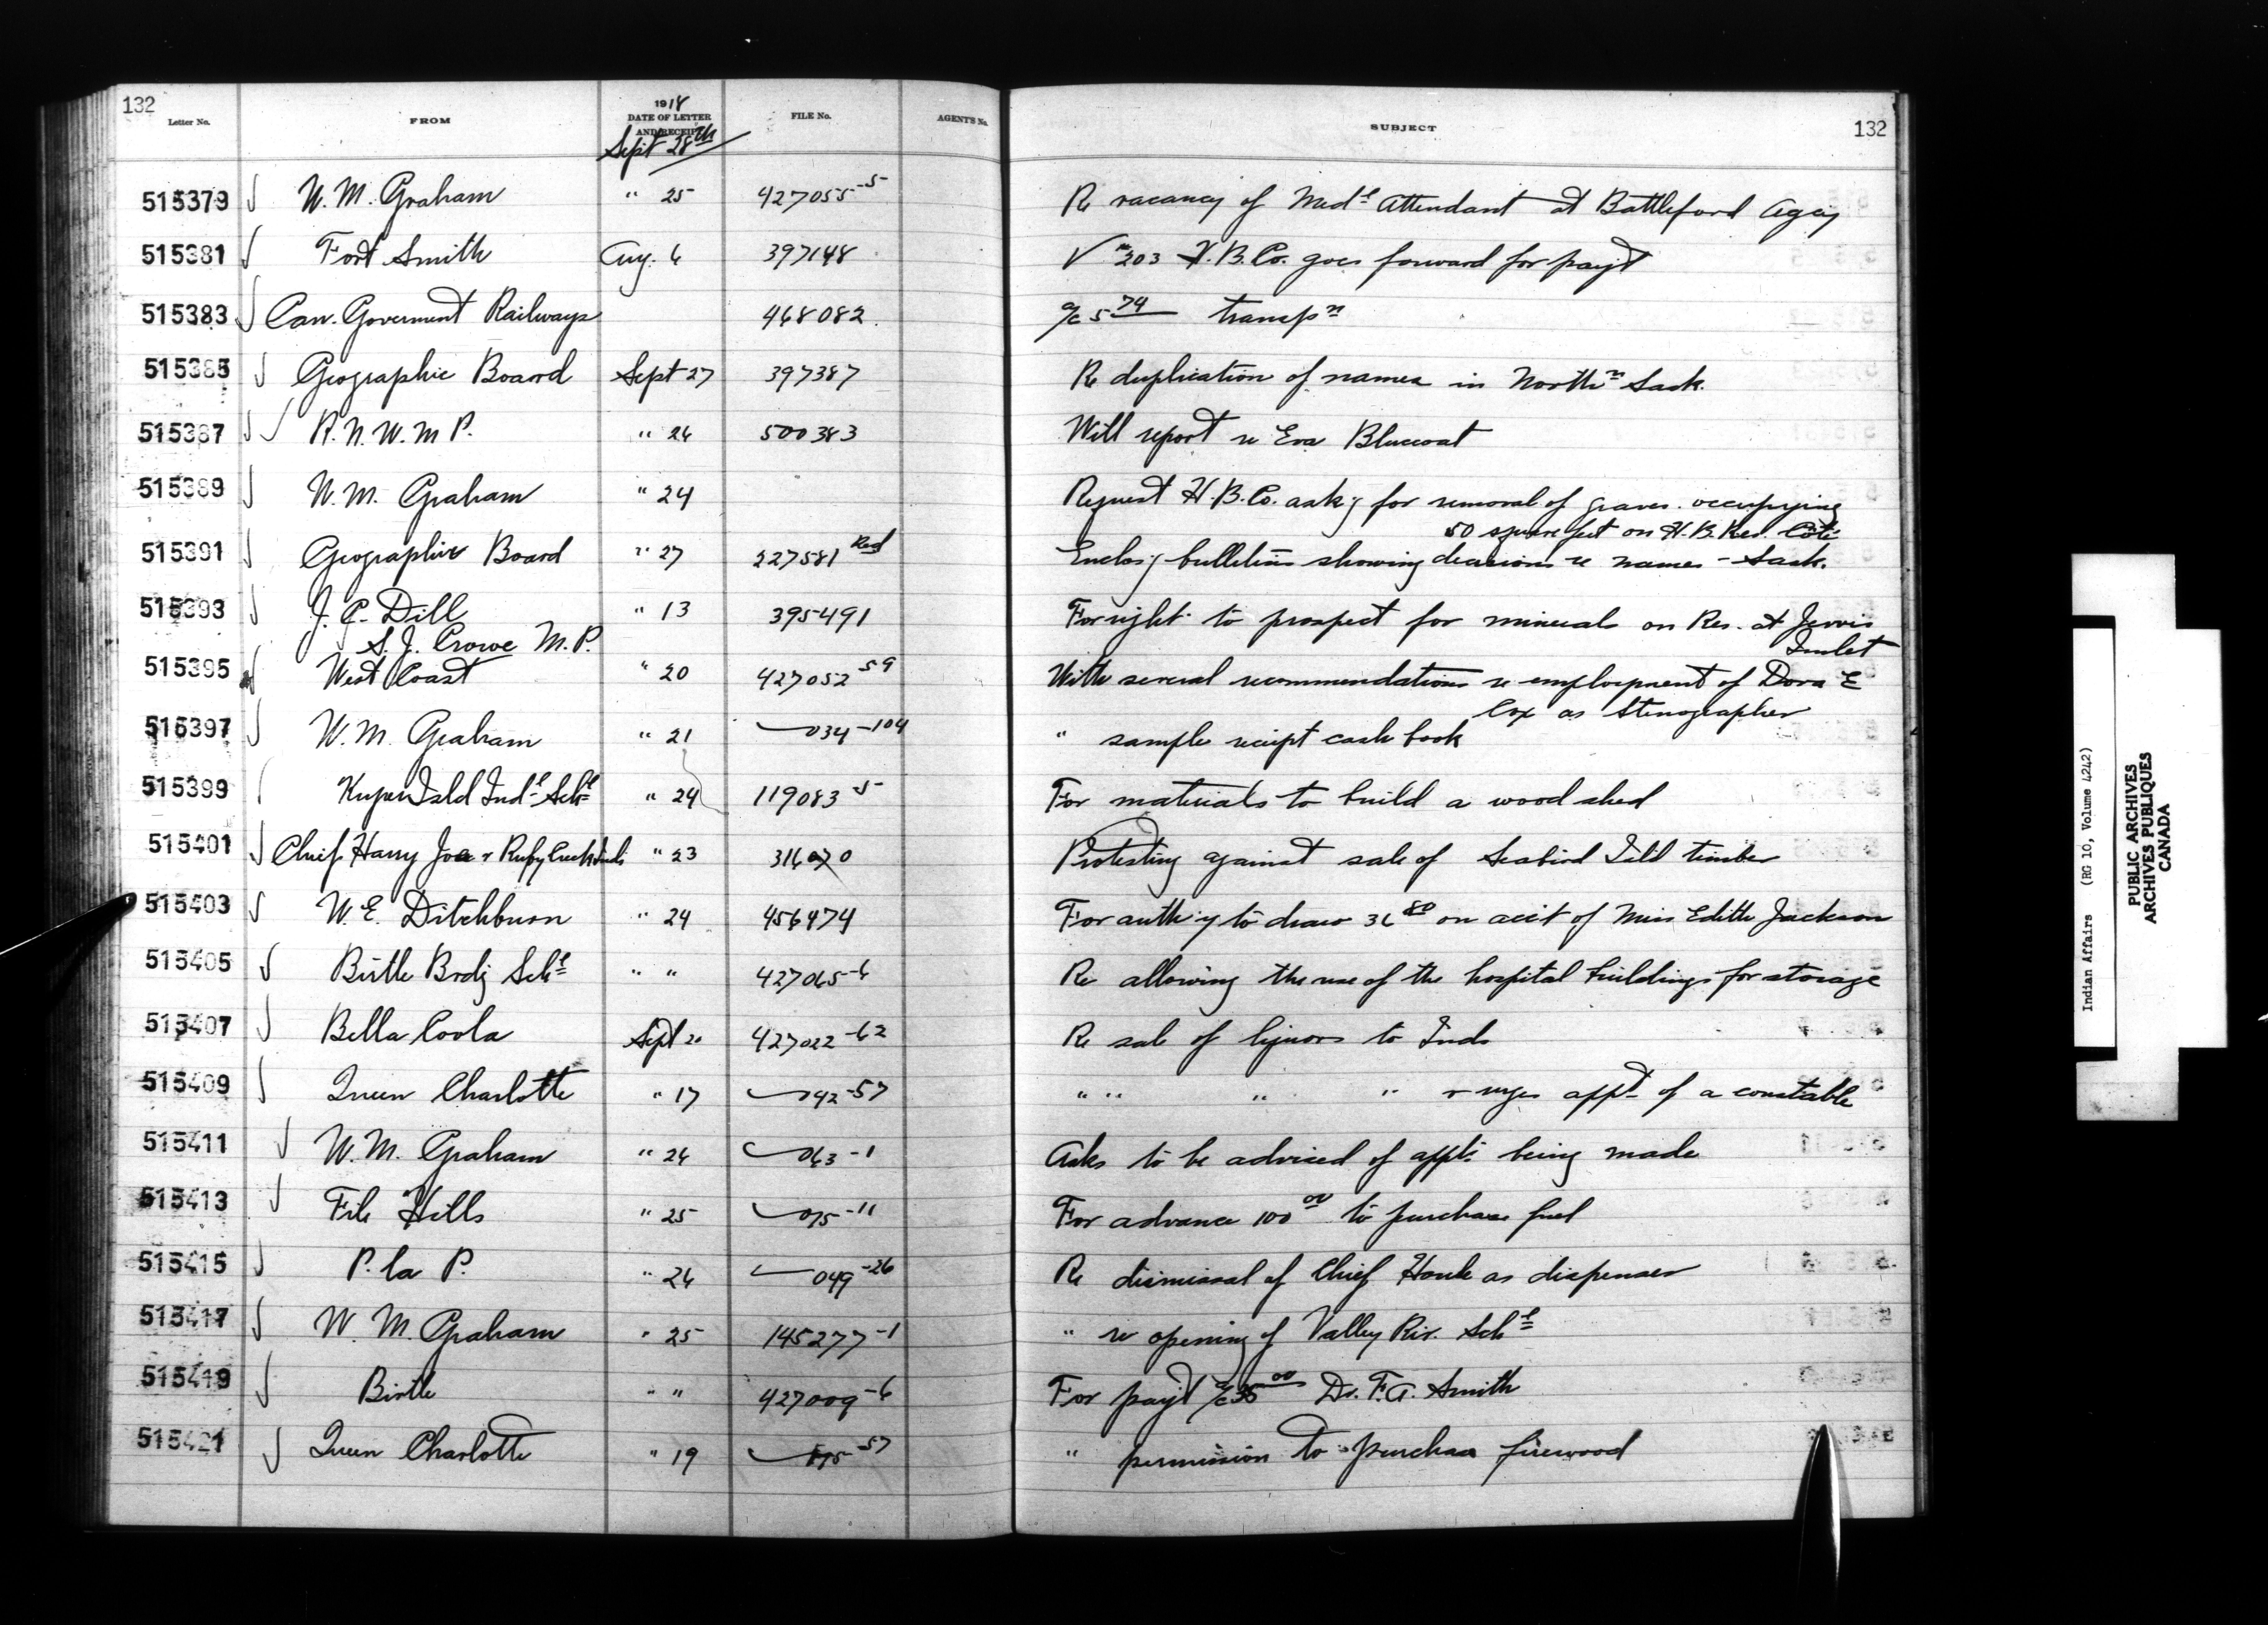 132
Letter No. FROM 1918 DATE OF LETTER AND RECEIPT FILE No. AGENT'S No. SUBJECT 132
Sept 28th
515379 W. M. Graham " 25 427055-5 Re vacancy of Medl Attendant at Battleford Agcy
515381 Fort Smith Aug. 6 397148 V no 303 H.B.Co. goes forward for payt
515383 Can. Goverment Railways 468082 a/c 5 74 transpn
515385 Geographic Board Sept 27 397387 Re duplication of names in Northn Sask.
515387 R. N. W. M P. " 26 500383 Will report re Eva Bluecoat
515389 W. M. Graham " 24 Request H.B.Co. askg for removal of graves occupying
50 square feet on H.B. Res. Cote
515391 Geographic Board " 27 227581 Red Enclosg bulletin showing decisions re names - Sask.
515393 J. C. Dill " 13 395491 For right to prospect for minerals on Res. at Jervis
S. J. Crowe M.P. Inlet
515395 West Coast " 20 427052-59 With several recommendations re employment of Dora E
Cox as Stenographer
515397 W. M. Graham " 21 034-104 " sample receipt cash book
515399 Kuper Isld Indl Schl " 24 119083-5 For materials to build a wood shed
515401 Chief Harry Joe & Ruby Creek Inds " 23 Protesting against sale of Seabird Isld timber
515403 W. E. Ditchburn " 24 456474 For authy to draw 36 80 on acct of Miss Edith Jackson
515405 Birtle Brdg Schl " " 427065-6 Re allowing the use of the hospital buildings for storage
515407 Bella Coola Sept 20 427022-62 Re sale of liquors to Inds
515409 Queen Charlotte " 17 042-57 " " " " & urges appt of a constable
515411 W. M. Graham " 26 063-1 Asks to be advised of appts being made
515413 File Hills " 25 075-11 For advance 100 00 to purchase fuel
515415 P. la P. " 26 049-26 Re dismissal of Chief Houle as dispenser
515417 W. M. Graham " 25 145277-1 " re opening of Valley Riv. Schl
515419 Birtle " " 427009-6 For payt a/c 35 00 Dr. F. A. Smith
515421 Queen Charlotte " 19 -57 " permission to purchase firewood
Indian Affairs (RG 10, Volume 4242)
PUBLIC ARCHIVES
ARCHIVES PUBLIQUES
CANADA